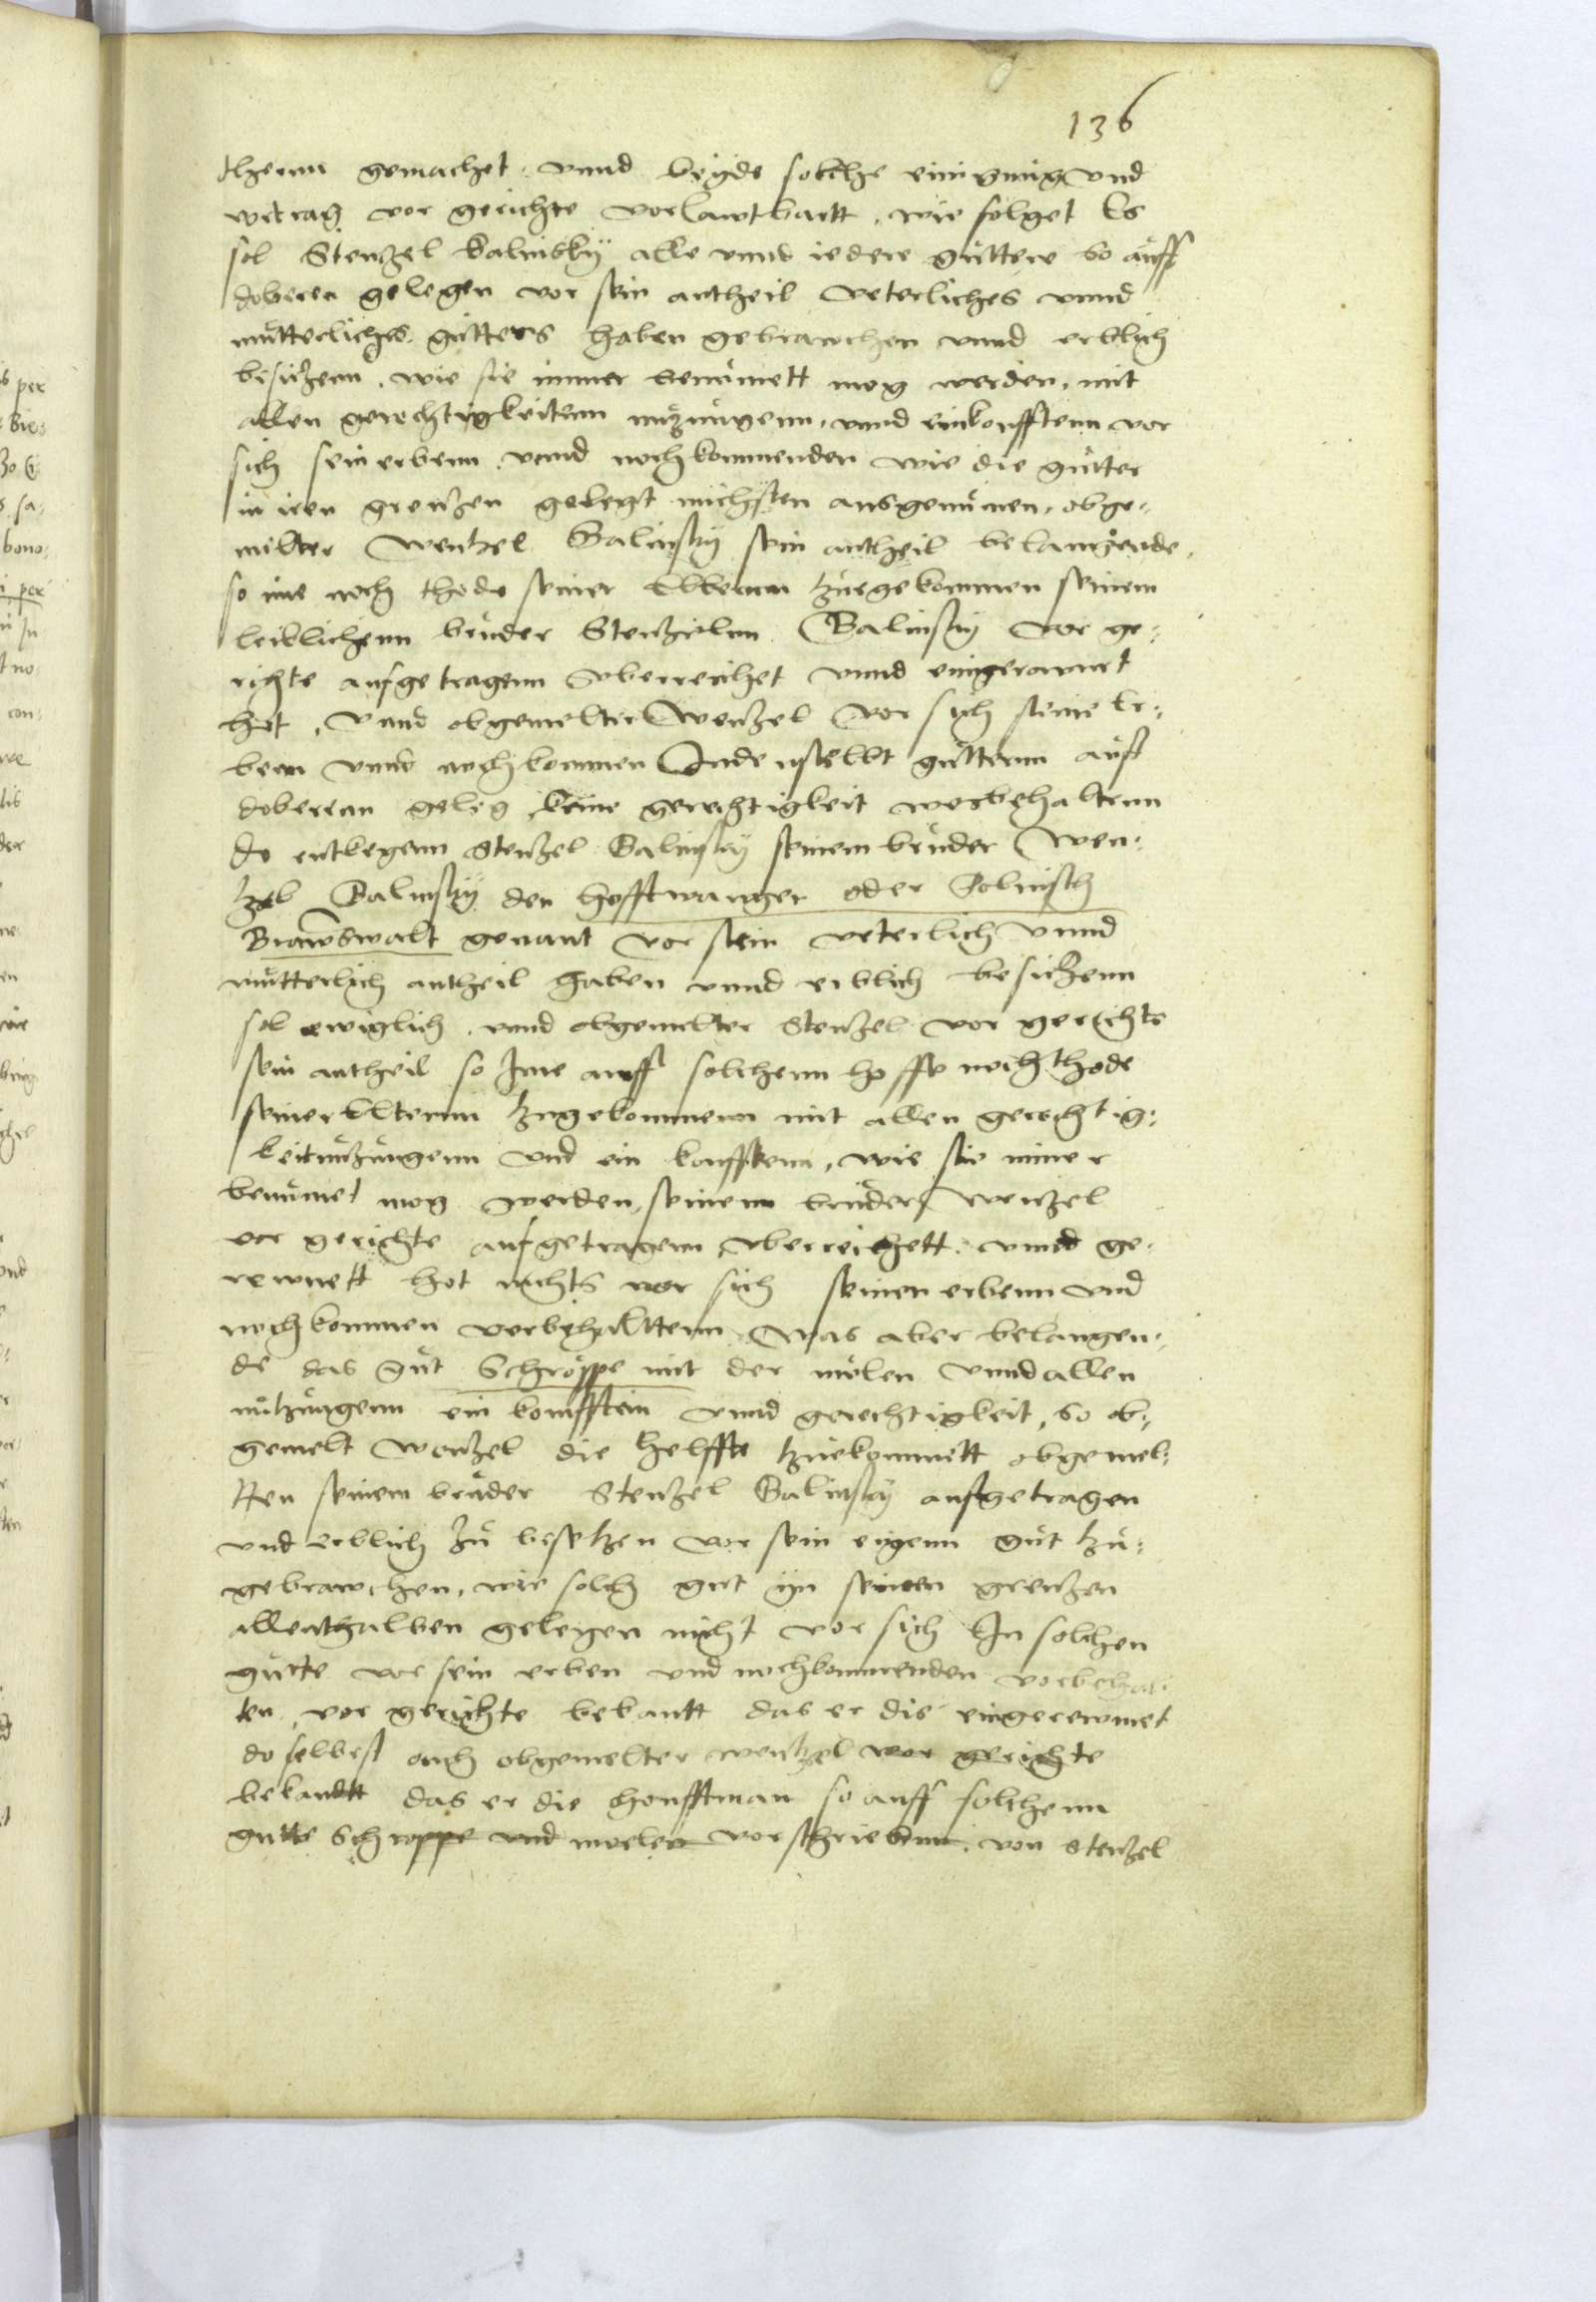 136
thenn gemachet. vnnd beyde solche einigung vnd
vertrag vor gerichte vorlawtbartt, wie folget Es
sol Stenzel Balinsky alle vnnd iedere guttere so auff
doberen gelegen vor sein antheil veterliches vnnd
mutterliches gutters haben gebrawchen vnnd erblich
besiczenn, wie sie immer benumett mog werden, mit
allen gerechtigkeitenn nuzungenn, vnnd einkonfftenn vor
sich sein erbenn vnnd nochkommenden wie die gutter
in iren grenzen gelegt nichsten ausgenumen, obge-
melter Wentzel Balinsky sein antheil belangende,
so ime noch thode seiner Elternn zugekommen seinem
leiblichenn bruder Stenzelnn Balinsky vor ge-
richte aufgetragenn vberreichet vnnd eingerawmt
hot, vnnd obgemelter Wenzel vor sich seine Er-
benn vnnd nochkommen guttern auff
doberenn geleg keine gerechtigkeit vorbehaltenn
do entkegenn Stenzel Balinsky seinem bruder Wen-
zel Balinsky den hoff oder Polnisch
Brawswalt genant vor sein veterlich vnnd
mutterlich antheil haben vnnd erblich besiczenn
sol ewiglich, vnnd obgemelter Stenzel vor gerichte
sein antheil so Ime auff solchenn hoffe noch thode
seiner Elternn zugekommenn mit allen gerechtig-
keit nuzungenn vnd ein konfftenn, wie sie immer
benumet mog werden, seinem bruder Wenzel
vor gerichte aufgetragenn vberreichett. vnnd ge-
rewmett hot nichts vor sich seinen erbenn vnd
nochkommen vorbehalttenn. Was aber belangen-
de das gut Schroppe mit der mölen vnnd allen
nutzungenn ein komfften vnnd gerechtigkeit, so ob-
gemelt Wenzel die helffte zuekommett obgemel-
tten seinem bruder Stenzel Balinsky aufgetragen
vnd erblich zu besetzen vor sein eigenn gut zu-
gebrawchen, wie solch gut yn seinen grenzen
allenthalben gelegen nicht vor sich In solchen
gutte vor sein erben vnd nochkommenden vorbehal-
ten, vor gerichte bekantt das er die eingerewmet
do selbest auch obgemelter wentzel vor gerichte
bekandtt das er die so auff solchenn
gutte Schroppe vnd moelen vorschriebenn, von Stenzel